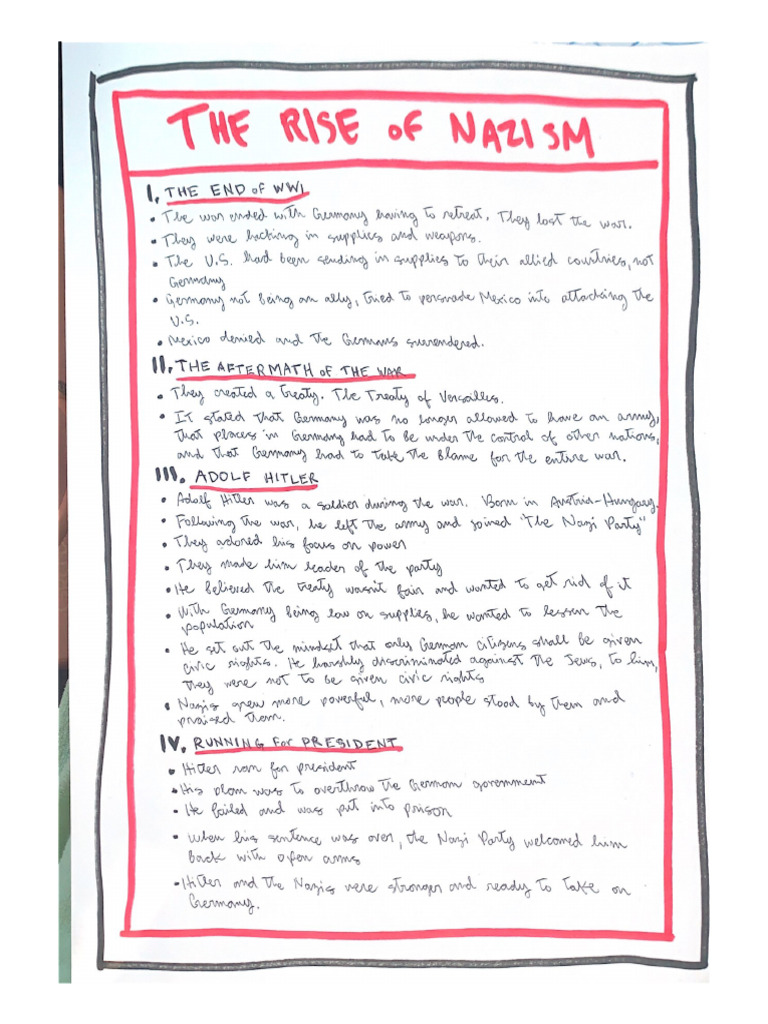 THE RISE OF NAZISM
I. THE END OF WW1
• The war ended with Germany having to retreat. They lost the war.
• They were lacking in supplies and weapons.
• The U.S. had been sending in supplies to their allied countries, not
Germany
• Germany not being an ally, tried to persuade Mexico into attacking the
U.S.
• Mexico denied and the Germans surrendered.
II. THE AFTERMATH OF THE WAR
• They created a treaty. The Treaty of Versailles.
• It stated that Germany was no longer allowed to have an army,
that places in Germany had to be under the control of other nations,
and that Germany had to take the blame for the entire war.
III. ADOLF HITLER
• Adolf Hitler was a soldier during the war. Born in Austria-Hungary.
• Following the war, he left the army and joined "The Nazi Party"
• They adored his focus on power
• They made him leader of the party
• He believed the treaty wasn't fair and wanted to get rid of it
• With Germany being low on supplies, he wanted to lessen the
population
• He set out the mindset that only German citizens shall be given
civic rights. He harshly discriminated against the Jews, to him,
they were not to be given civic rights
• Nazis grew more powerful, more people stood by them and
praised them.
IV. RUNNING FOR PRESIDENT
• Hitler ran for president
• His plan was to overthrow the German government
• He failed and was put into prison
• When his sentence was over, the Nazi Party welcomed him
back with open arms
• Hitler and the Nazis were stronger and ready to take on
Germany.